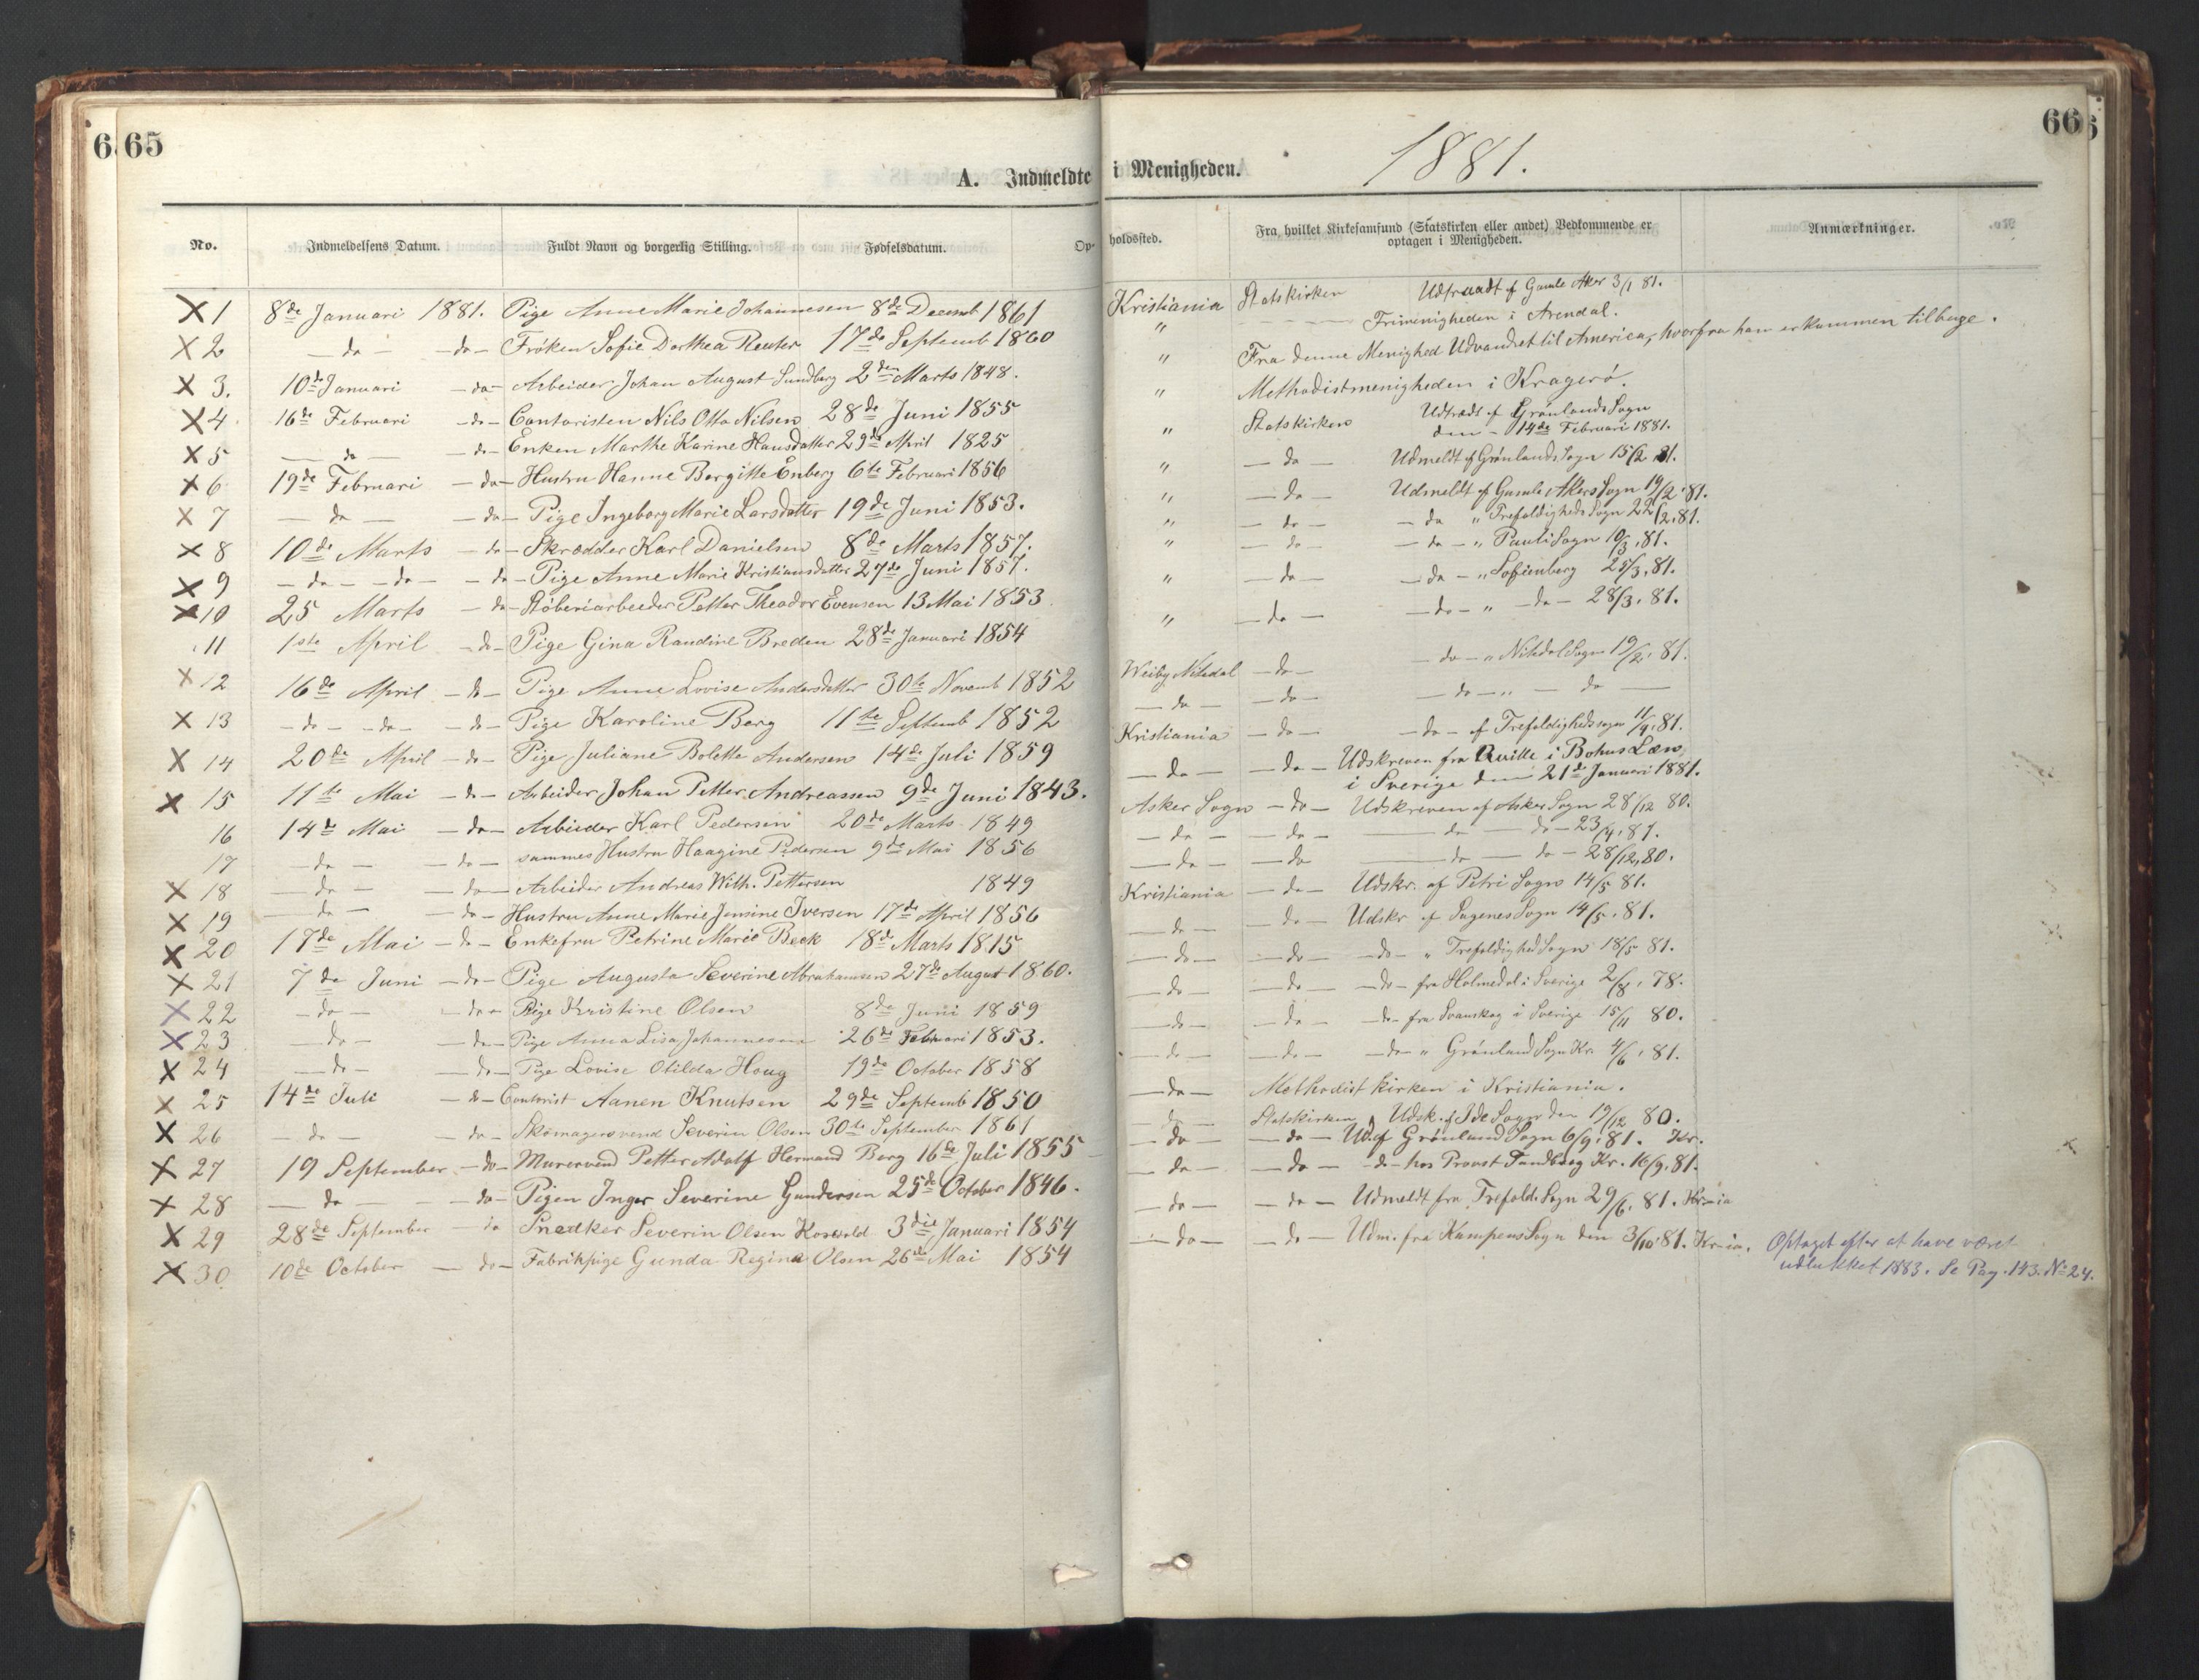 65
A. Indmeldte
No. Indmeldelsens Datum. Fuldt Navn og borgerlig Stilling. Fødselsdatum. Op-
X 1 8de Januari 1881. Pige Anne Marie Johannesen 8de Decemb 1861
X 2 — do — — do — Frøken Sofie Dorthea Reuter 17de Septemb 1860
X 3. 10de Januari — do — Arbeider Johan August Sundberg 2den Marts 1848.
X 4 16de Februari — do — Contoristen Nils Otto Nilsen 28de Juni 1855
X 5 — do — — do — Enken Marthe Karine Hansdatter 29de April 1825
X 6 19de Februari — do — Hustru Hanne Bergitte Enberg 6te Februari 1856
X 7 — do — — do — Pige Ingeborg Marie Larsdatter 19de Juni 1853.
X 8 10de Marts — do — Skrædder Karl Danielsen 8de Marts 1857.
X 9 — do — — do — — do — Pige Anne Marie Kristiansdatter 27de Juni 1857.
X 10 25 Marts — do — Støberiarbeider Petter Theodor Evensen 13 Mai 1853
11 1ste April — do — Pige Gina Randine Breden 28de Januari 1854
X 12 16de April — do — Pige Anne Lovise Andersdatter 30te Novemb 1852
X 13 — do — — do — — do — Pige Karoline Berg 11te Septemb 1852
X 14 20de April — do — Pige Juliane Bolette Andersen 14de Juli 1859
X 15 11te Mai — do — Arbeider Johan Petter Andreassen 9de Juni 1843.
16 14de Mai — do — Arbeider Karl Pedersen 20de Marts 1849
17 — do — — do — sammes Hustru Haagine Pedersen 9de Mai 1856
X 18 — do — — do — Arbeider Andreas Wilh. Pettersen 1849
X 19 — do — — do — Hustru Anne Marie Jensine Iversen 17de April 1856
X 20 17de Mai — do — Enkefru Petrine Marie Beck 18de Marts 1815
X 21 7de Juni — do — Pige Augusta Severine Abrahamsen 27de August 1860.
X 22 — do — — do — Pige Kristine Olsen 8de Juni 1859
X 23 — do — — do — Pige Anna Lisa Johannesen 26de Februari 1853.
X 24 — do — — do — Pige Lovise Otilda Houg 19de October 1858
X 25 14de Juli — do — Contorist Aanen Knutsen 29de Septemb 1850
X 26 — do — — do — Skomagersvend Severin Olsen 30te September 1861
X 27 19 September — do — Murersvend Petter Adolf Hermand Berg 16de Juli 1855
X 28 — do — — do — Pigen Inger Severine Gundersen 25de October 1846.
X 29 28de September — do Snedker Severin Olsen 3die Januari 1854
X 30 10de October — do — Fabrikpige Gunda Regina Olsen 26de Mai 1854
66
i Menigheden. 1881.
holdssted. Fra hvilket Kirkesamfund (Statskirken eller andet) Vedkommende er optagen i Menigheden. Anmærkninger.
Kristiania Statskirken Udtraadt af Gamle Aker 3/1 81.
" Frimenigheden i Arendal.
" Fra denne Menighed Udvandret til America, hvorfra han er kommen tilbage.
" Methodistmenigheden i Kragerø.
" Statskirken Udtrædt af Grønlands Sogn
den 14de Februari 1881.
" — do — Udmeldt af Grønlands Sogn 15/2 81.
" — do — Udmeldt af Gamle Akers Sogn 19/2 81.
" — do — — do " Trefoldigheds Sogn 22/2, 81.
" — do — — do — " Pauli Sogn 10/3, 81.
" — do — — do — " Sofienberg 25/3, 81.
" — do — — do — " — do — 28/3, 81.
Weiby Nitedal — do — — do — " Nitedal Sogn 19/2, 81.
— do — — do — — do — " — do —
Kristiania — do — — do — af Trefoldighedssogn 11/4, 81.
— do — — do — Udskreven fra Qville i Bohus Læn
i Sverige den 21de Januari 1881.
Asker Sogn — do — Udskreven af Asker Sogn 28/12 80.
— do — — do — — do — do — 23/4, 81.
— do — — do — do — do — 28/12, 80.
Kristiania — do — Udskr. af Petri Sogn 14/5 81.
— do — — do — Udskr af Sagenes Sogn 14/5, 81.
— do — — do — — do — " Trefoldighed Sogn 18/5 81.
— do — — do — — do — fra Holmedal i Sverige 2/8, 78.
— do — — do — — do — fra Svanskog i Sverige 15/11 80.
— do — — do — — do — " Grønland Sogn Kr. 4/6, 81.
— do — Methodistkirken i Kristiania.
— do — Statskirken, Udsk. af Ide Sogn den 19/12 80.
— do — — do — Ud af Grønland Sogn 6/9, 81. Kr.
— do — — do — — do — hos Provst Kr. 16/9, 81.
— do — — do — Udmeldt fra Trefold. Sogn 29/6, 81. Kr-ia
— do — — do — Udm. fra Kampens Sogn den 3/10 81. Kr-ia. Optaget efter at have været
udlukket 1883. Se Pag. 143. No 24.